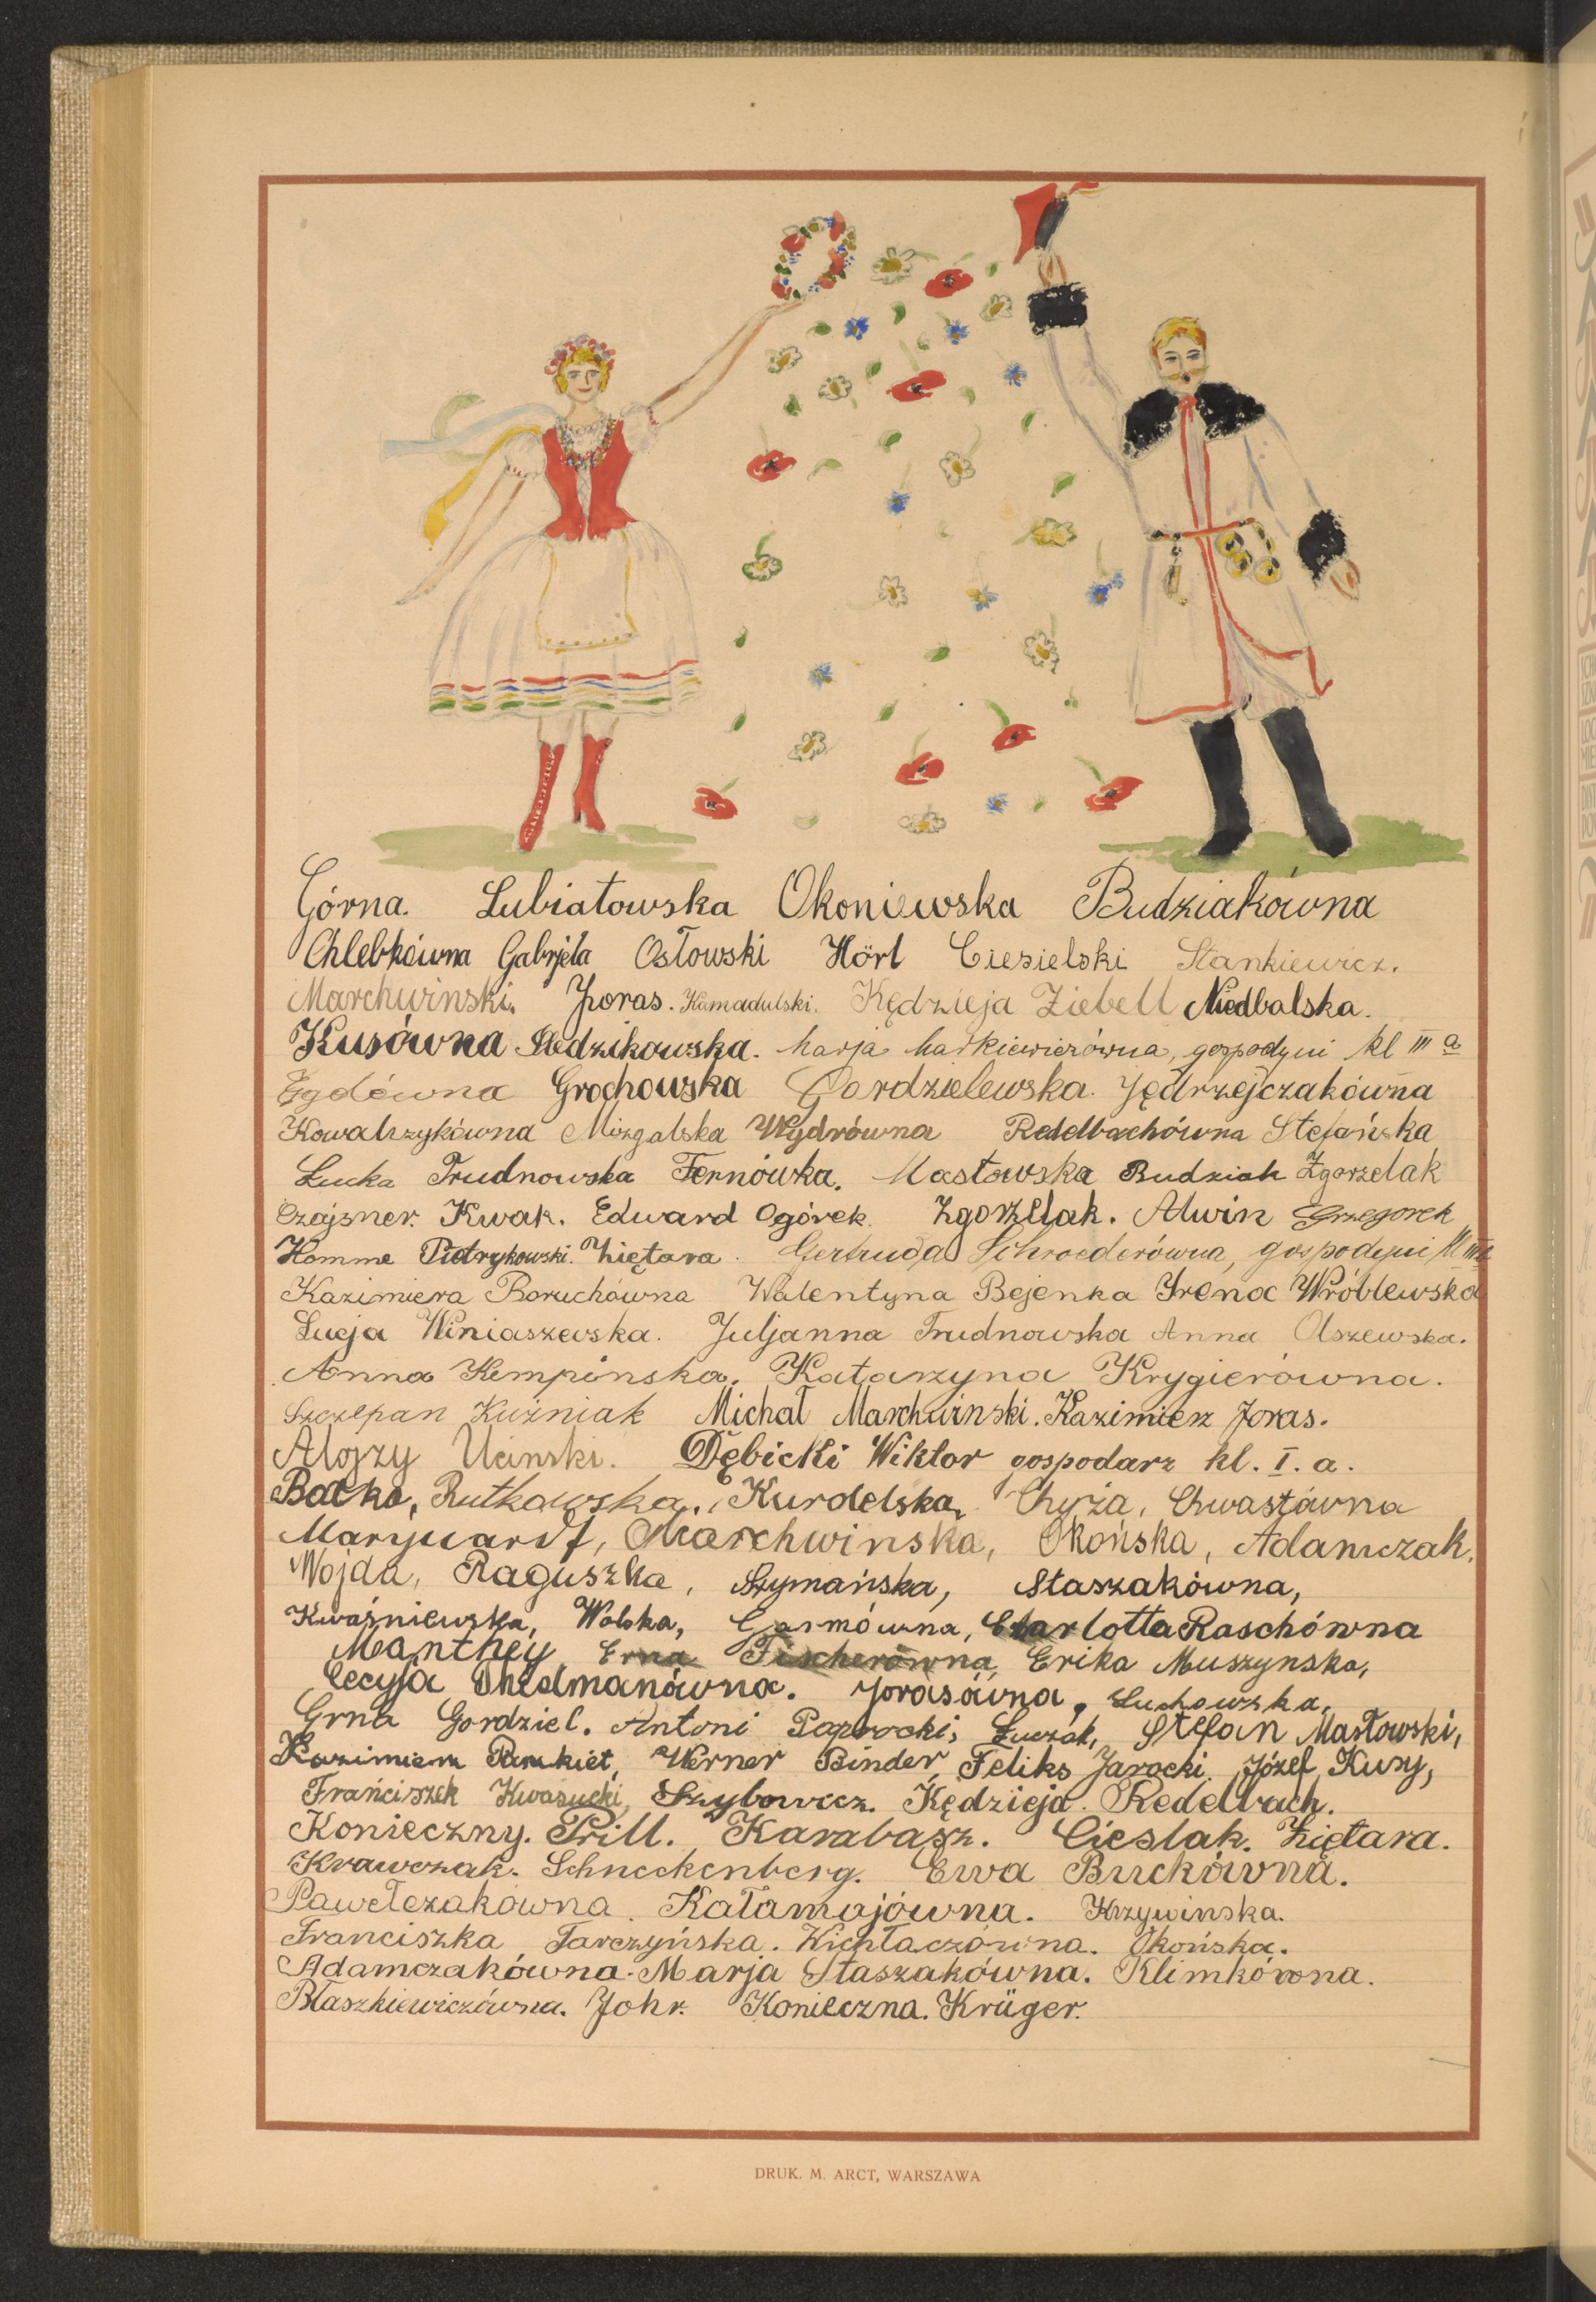 Górna. Lubiatowska Okoniewska Budziakówna
Chlebkówna Gabryela Osłowski Hörl Ciesielski Stankiewicz.
Marchwinski. Joras. Kamadulski. Kędzieja Ziebell Niedbalska.
Kusówna Śledzikowska. Marja Markiewiczówna, gospodyni kl III a
Egdówna Grochowska Gordzielewska. Jędrzejczakówna
Kowalczykówna Mizgalska Wydrówna Redelbachówna Stefańska
Łucka Trudnowska Fernówka. Masłowska Budziak Zgorzelak
Czajsner. Kwak. Edward Ogórek. Zgorzelak. Alwin Grzegorek
Homme Pietrykowski. Ziętara. Gertruda Schroederówna, gospodyni kl
Kazimiera Boruchówna Walentyna Bejenka Irena Wróblewska
Łucja Winiaszewska. Juljanna Trudnowska Anna Olszewska.
Anna Kempinska. Katarzyna Krygierówna.
Szczepan Kuźniak Michał Marchwinski. Kazimierz Joras.
Alojzy Ucinski. Dębicki Wiktor gospodarz kl. I. a.
Rutkowska, Kurdelska, Chyża, Chwastówna
Marquardt, Marchwinska, Okońska, Adamczak,
Wojda, Raguszka, Szymańska, Staszakówna,
Kwaśniewska, Wolska, Garmówna, Charlotta Raschówna
Manthey Erna Fischerówna, Erika Muszynska,
Cecylja Thidmanówna. Jorasówna, Suchowska,
Gordziel. Antoni Paprocki, Łuczak, Stefan Masłowski,
Kazimierz Pankiet, Werner Binder, Feliks Jarocki, Józef Kusy,
Franciszek Kwasucki, Szybowicz. Kędzieja. Redelbach.
Konieczny. Prill. Karabasz. Cieslak. Ziętara.
Krawczak. Schneckenberg. Ewa Buckówna.
Pawełczakówna. Katamajówna. Krzywinska.
Franciszka Tarczyńska. Wichłaczówna. Okońska.
Adamczakówna. Marja Staszakówna. Klimkówna.
Błaszkiewiczówna. John. Konieczna. Krüger.
DRUK. M. ARCT, WARSZAWA